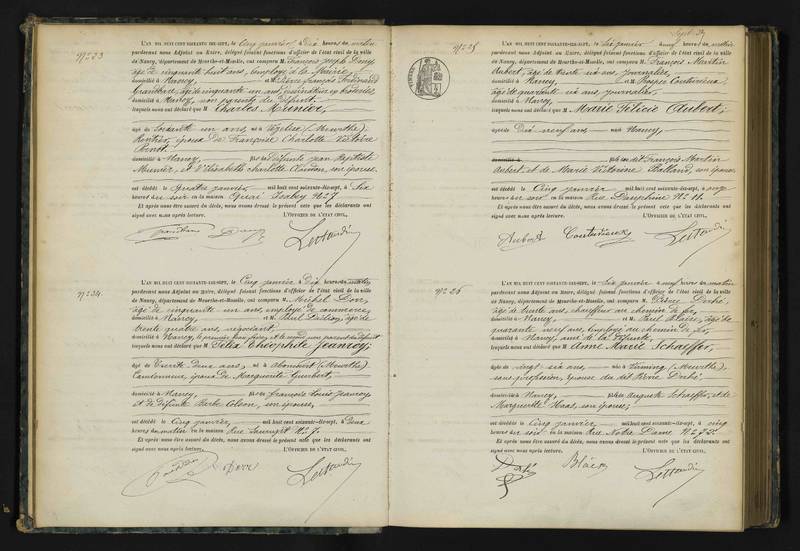 N° 23
L'AN MIL HUIT CENT SOIXANTE-DIX-SEPT, le Cinq janvier à Dix heures du matin
pardevant nous Adjoint au Maire, délégué faisant fonctions d'officier de l'état civil de la ville
de Nancy, département de Meurthe-et-Moselle, ont comparu M. François Joseph
âgé de cinquante huit ans, employé à la Mairie,
domicilié à Nancy, et M. Pierre François Ferdinand
âgé de cinquante un ans,
domicilié à Nancy, non parents du défunt,
lesquels nous ont déclaré que M. Charles Meunier,
âgé de soixante un ans, né à Vézelise (Meurthe),
Rentier, époux de Françoise Charlotte Victoire
domicilié à Nancy, fils de défunts Jean Baptiste
Meunier, et d'Elisabeth Charlotte Claudon, son épouse,
est décédé le Quatre janvier mil huit cent soixante-dix-sept, à Six
heures du soir en la maison Quai Isabey N° 7
Et après nous être assuré du décès, nous avons dressé le présent acte que les déclarants ont
signé avec nous après lecture. L'OFFICIER DE L'ÉTAT CIVIL,
N° 24.
L'AN MIL HUIT CENT SOIXANTE-DIX-SEPT, le Cinq janvier à Dix heures du matin
pardevant nous Adjoint au Maire, délégué faisant fonctions d'officier de l'état civil de la ville
de Nancy, département de Meurthe-et-Moselle, ont comparu M. Michel Dorr,
âgé de cinquante un ans, employé de commerce,
domicilié à Nancy, et M. Paul âgé de
trente quatre ans, négociant,
domicilié à Nancy, le premier et le second non parent du défunt
lesquels nous ont déclaré que M. Félix Théophile Jeanroy,
âgé de trente deux ans, né à Aboncourt (Meurthe)
Cantonnier, époux de Marguerite
domicilié à Nancy, fils de François Louis Jeanroy
et de défunte Barbe Colson, son épouse,
est décédé le Cinq janvier, mil huit cent soixante-dix-sept, à deux
heures du matin en la maison Rue N° 7.
Et après nous être assuré du décès, nous avons dressé le présent acte que les déclarants ont
signé avec nous après lecture. L'OFFICIER DE L'ÉTAT CIVIL,
Dorr
N° 25
L'AN MIL HUIT CENT SOIXANTE-DIX-SEPT, le Six janvier à neuf heures du matin
pardevant nous Adjoint au Maire, délégué faisant fonctions d'officier de l'état civil de la ville
de Nancy, département de Meurthe-et-Moselle, ont comparu M. François Martin
Aubert, âgé de trente six ans, journalier,
domicilié à Nancy, et M. Prosper
âgé de quarante six ans, journalier,
domicilié à Nancy,
lesquels nous ont déclaré que M. Marie Félicie Aubert,
âgée de Dix neuf ans née à Nancy,
domicilié à fille du dit François Martin
Aubert et de Marie Victorine Balland, son épouse
est décédé le Cinq janvier mil huit cent soixante-dix-sept, à onze
heures du soir en la maison Rue Dauphine N° 11.
Et après nous être assuré du décès, nous avons dressé le présent acte que les déclarants ont
signé avec nous après lecture. L'OFFICIER DE L'ÉTAT CIVIL,
Aubert
N° 26
L'AN MIL HUIT CENT SOIXANTE-DIX-SEPT, le Six janvier à neuf heures du matin
pardevant nous Adjoint au Maire, délégué faisant fonctions d'officier de l'état civil de la ville
de Nancy, département de Meurthe-et-Moselle, ont comparu M. Pierre Derbé,
âgé de trente ans, chauffeur au chemin de fer,
domicilié à Nancy, et M. Paul Blaise, âgé de
quarante neuf ans, employé au chemin de fer,
domicilié à Nancy, ami de la défunte,
lesquels nous ont déclaré que M. Anne Marie Schaeffer,
âgée de vingt six ans, née à (Meurthe),
sans profession, épouse du dit Pierre Derbé,
domicilié à Nancy, fille de Auguste Schaeffer, et de
Marguerite Haas, son épouse,
est décédé le Cinq janvier mil huit cent soixante-dix-sept, à cinq
heures du soir en la maison Rue Notre Dame N° 75
Et après nous être assuré du décès, nous avons dressé le présent acte que les déclarants ont
signé avec nous après lecture. L'OFFICIER DE L'ÉTAT CIVIL,